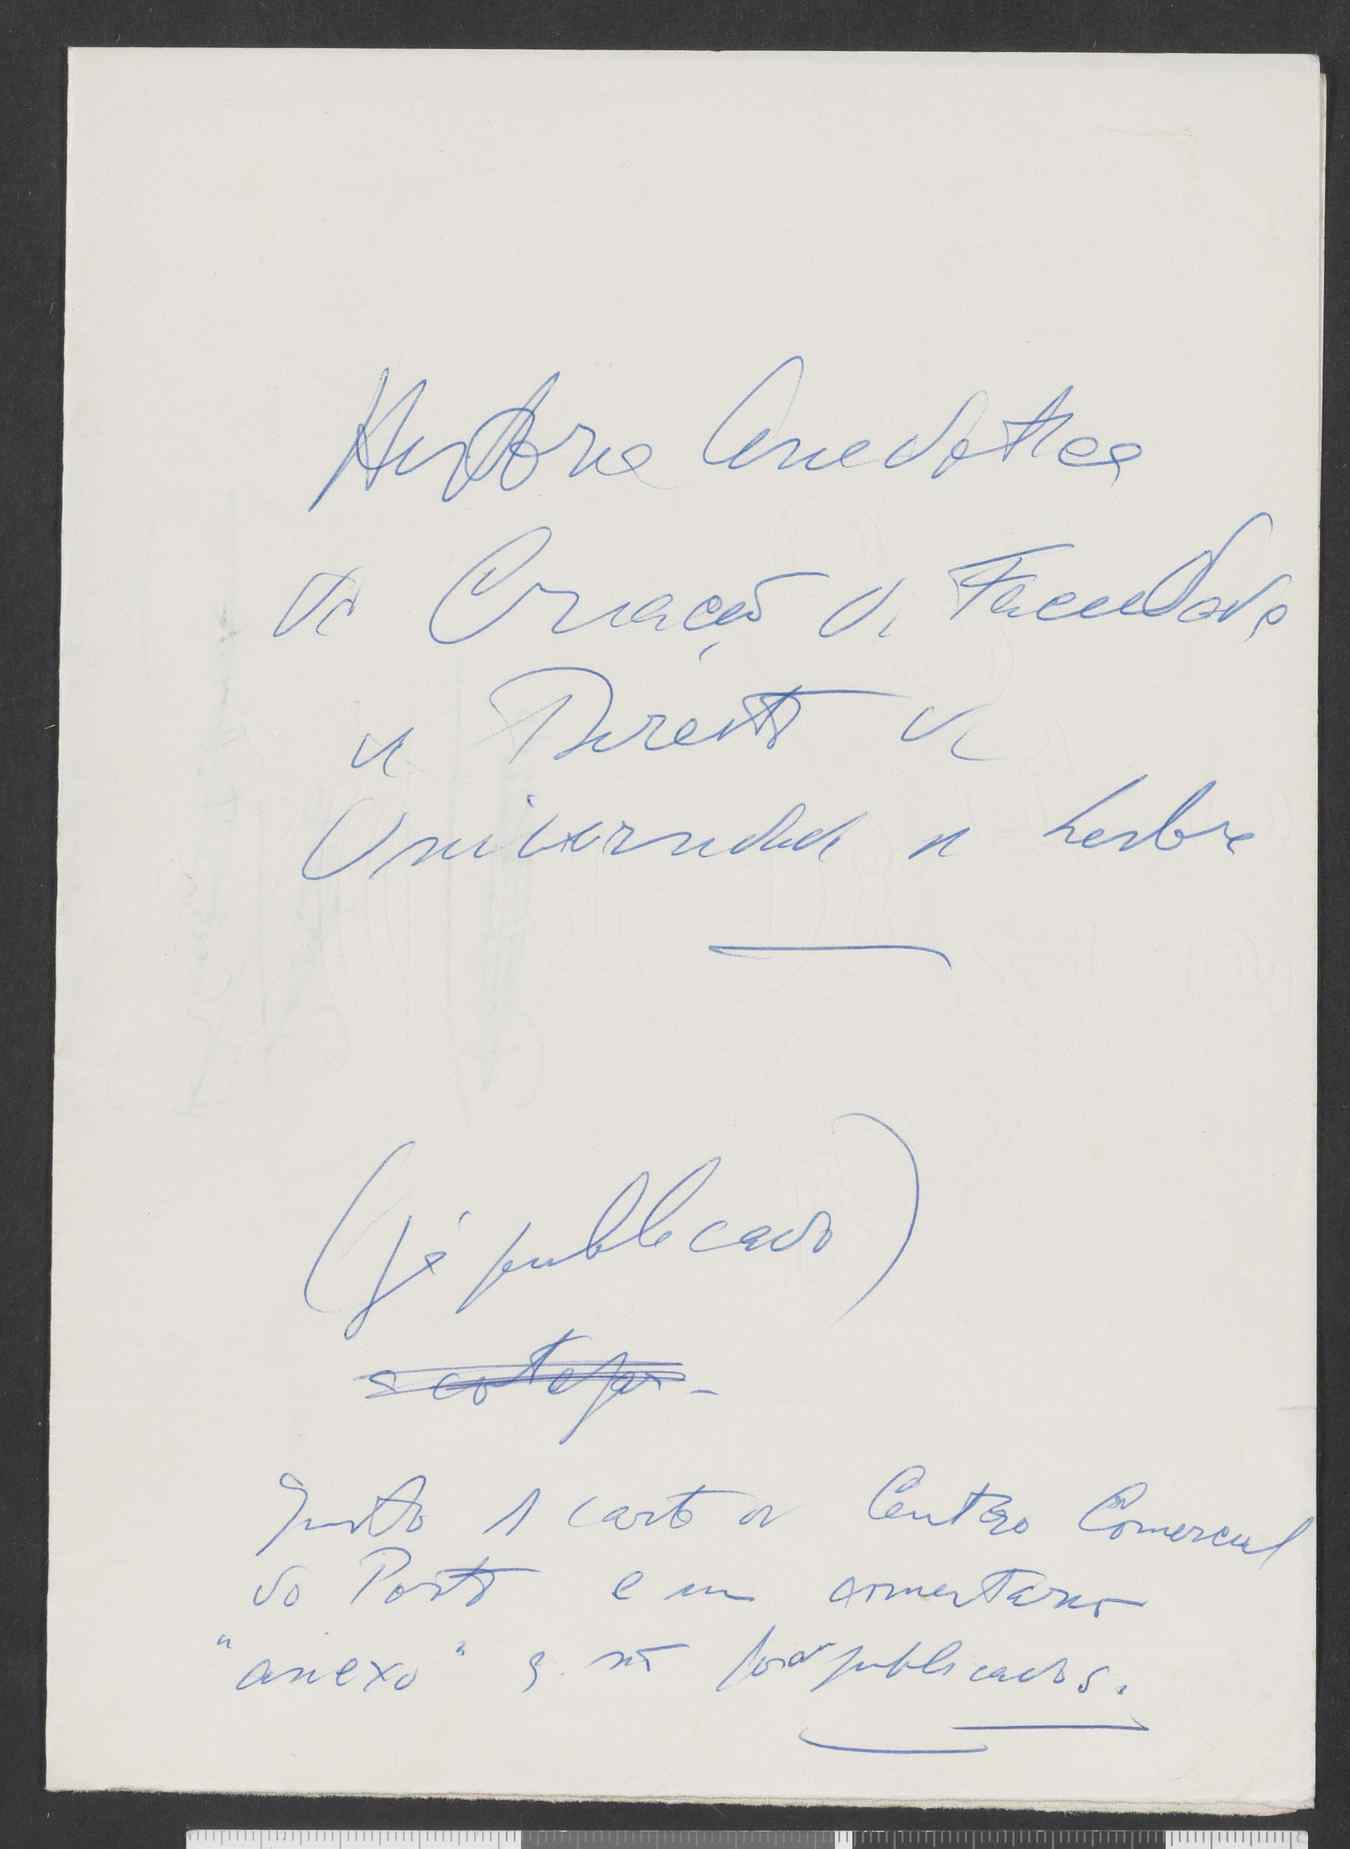 História Anedótica
da Criação da Faculdade
de Direito da
Universidade de Lisboa
(já publicado)
Junto 1 carta do Centro Comercial
do Porto e um comentário
"anexo" q. não foram publicados.